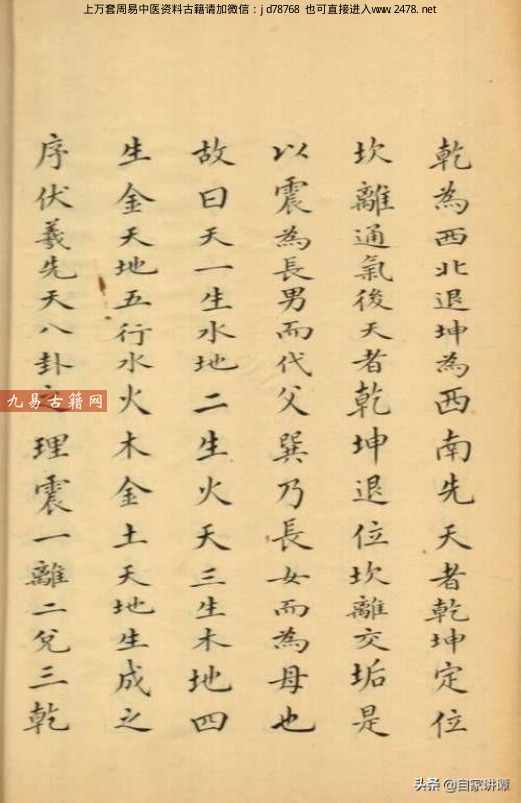 上万套周易中医资料古籍请加微信：jd78768 也可直接进入www.2478.net
乾為西北退坤為西南先天者乾坤定位
坎離通氣後天者乾坤退位坎離交垢是
以震為長男而代父巽乃長女而為母也
故曰天一生水地二生火天三生木地四
生金天地五行水火木金土天地生成之
序伏羲先天八卦之理震一離二兌三乾
九易古籍网
头条 @自家讲谭